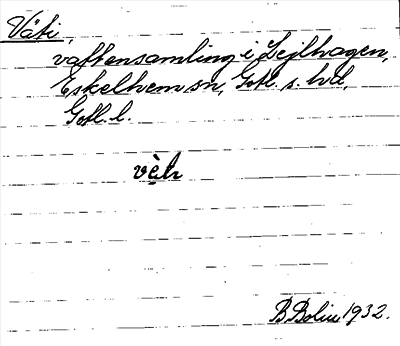 Väti,
vattensamling i Lejlhagen,
Eskelhem sn, Gotl. s. hd,
Gotl. l.
vèh
B Bolin 1932.